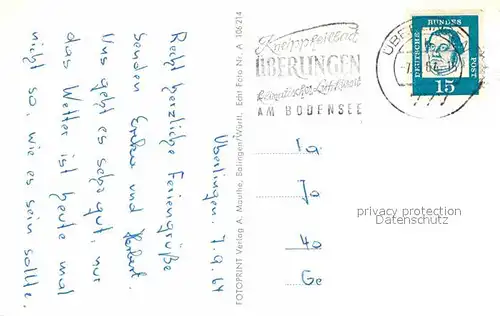 Überlingen, 7.9.64
Recht herzliche Feriengrüße
senden Erika und Herbert.
Uns geht es sehr gut, nur
das Wetter ist heute mal
nicht so, wie es sein sollte.
FOTOPRINT Verlag A. Mauthe, Balingen/Württ. Echt Foto Nr. A 106 214
Kneippheilbad
ÜBERLINGEN
klimatischer Luftkurort
AM BODENSEE
DEUTSCHE BUNDES POST
15
Ja
Jo
40
Ge
privacy protection
Datenschutz